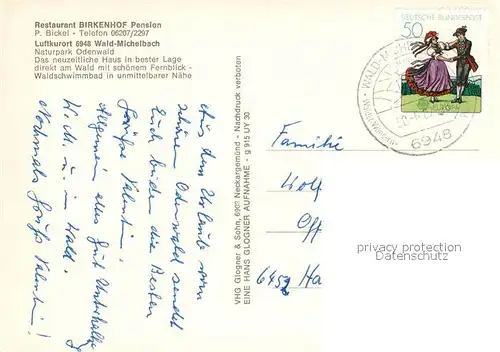 Restaurant BIRKENHOF Pension
P. Bickel - Telefon 06207/2297
Luftkurort 6948 Wald-Michelbach
Naturpark Odenwald
Das neuzeitliche Haus in bester Lage
direkt am Wald mit schönem Fernblick -
Waldschwimmbad in unmittelbarer Nähe
Aus dem Urlaube vom
schönen Odenwald sendet
Euch beiden die Besten
Grüße Valentin.
Allgemein alles gut Unterhaltung
u. in Wald.
Nochmals Grüße Valentin!
VHG Glogner & Sohn, 6901 Neckargemünd - Nachdruck verboten
EINE HANS GLOGNER AUFNAHME - g 915 UY 30
DEUTSCHE BUNDESPOST
50
EUROPA
WALD-MICHELBACH
6948
Familie
Wolf
Off
6452 Ha
privacy protection
Datenschutz